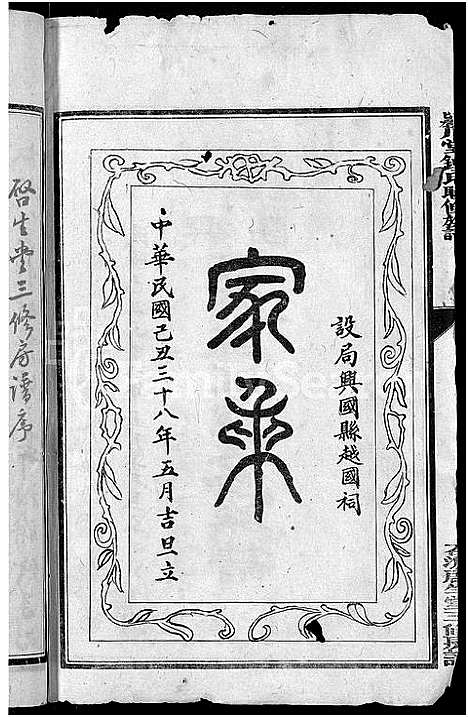 設局興國縣越國祠
家乘
中華民國己丑三十八年五月吉旦立
啓生堂三修房譜序